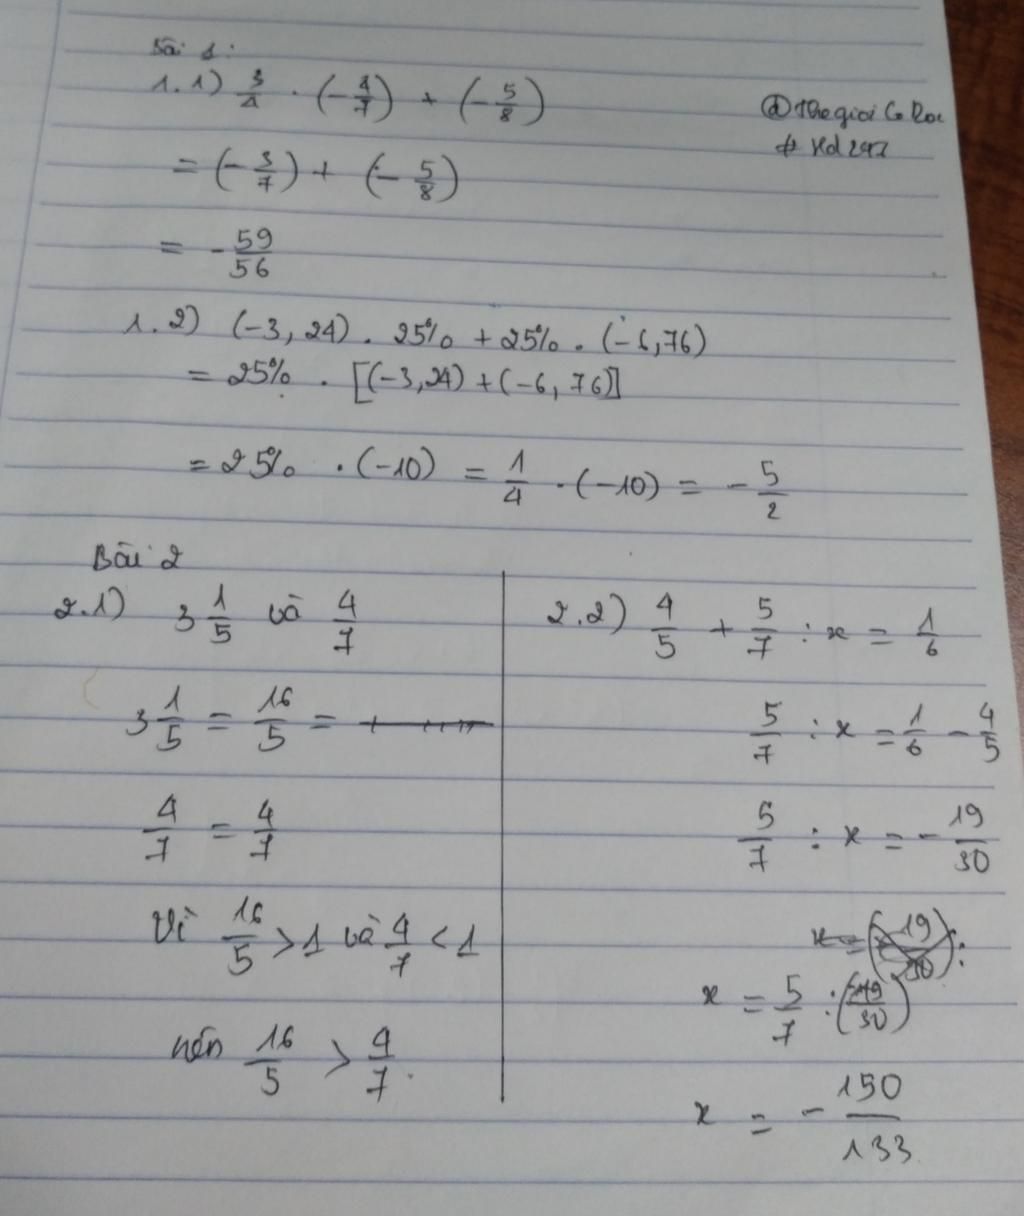 Bài 1:
1.1) 3/4 . (-4/7) + (-5/8)
= (-3/7) + (-5/8)
= -59/56
1.2) (-3,24) . 25% + 25% . (-6,76)
= 25% . [(-3,24) + (-6,76)]
= 25% . (-10) = 1/4 . (-10) = -5/2
Bài 2
2.1) 3 1/5 và 4/7
3 1/5 = 16/5 =
4/7 = 4/7
Vì 16/5 > 1 và 4/7 < 1
nên 16/5 > 4/7.
2.2) 4/5 + 5/7 : x = 1/6
5/7 : x = 1/6 - 4/5
5/7 : x = -19/30
x = 5/7 : (-19/30)
x = -150/133